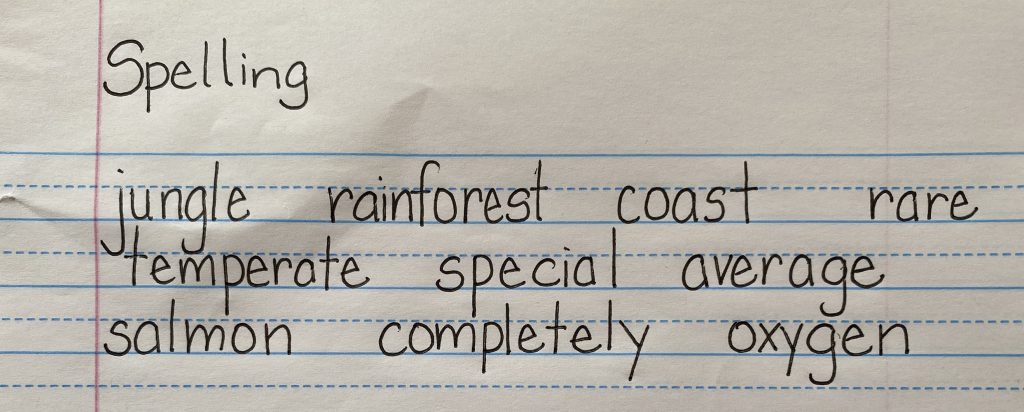 Spelling
jungle rainforest coast rare
temperate special average
salmon completely oxygen